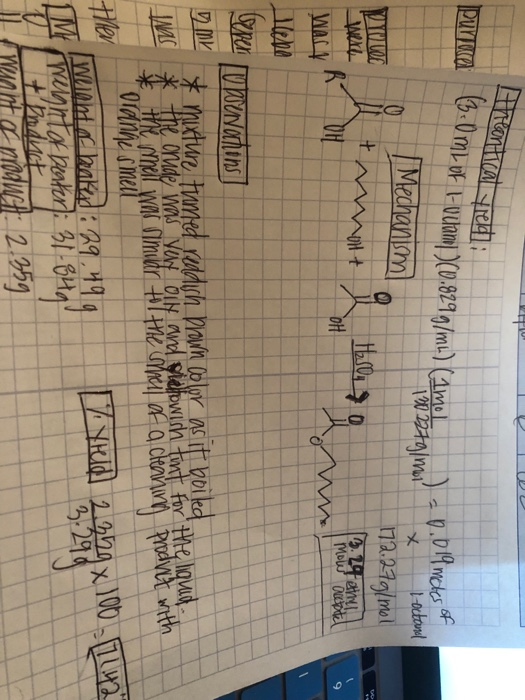 Theoretical yield:
(3.0 mL of 1-octanol) (0.829 g/mL) (1 mol / 130.227 g/mol) = 0.019 moles of 1-octanol
x
172.27 g/mol
3.29
Mechanism
R
O
OH
+
OH
+
O
OH
H₂SO₄
O
O
Observations
* mixture turned reddish brown color as it boiled
* the crude was very oily and yellowish tint for the liquid.
* the smell was similar to the smell of a cleaning product with
orange smell
weight of beaker: 29.49 g
weight of beaker: 31.84 g
+ product
weight of product: 2.35g
% yield
2.35g
3.29g
x 100 =
71.42